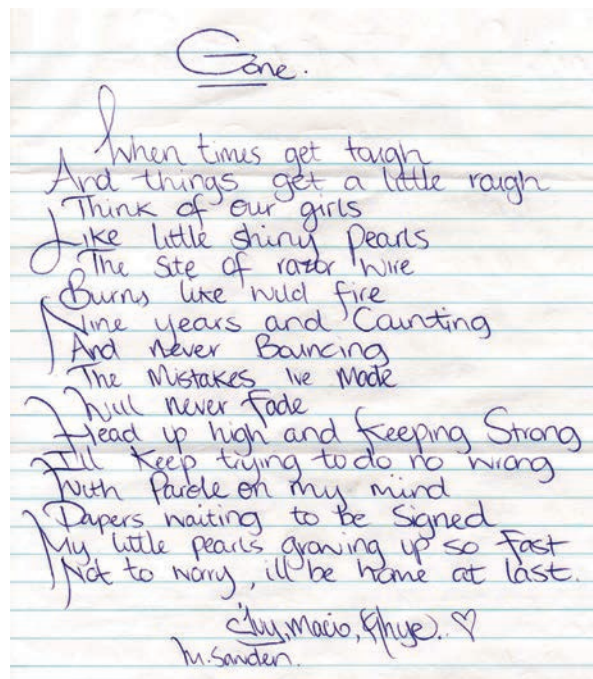 Gone.
When times get tough
And things get a little rough
Think of our girls
Like little shiny pearls
The site of razor wire
Burns like wild fire
Nine years and Counting
And never Bouncing
The Mistakes Ive Made
Will never fade
Head up high and keeping Strong
I'll keep trying to do no wrong
With Parole on my mind
Papers waiting to be Signed
My little pearls growing up so fast
Not to worry, ill be home at last.
♡
M. Sanden.